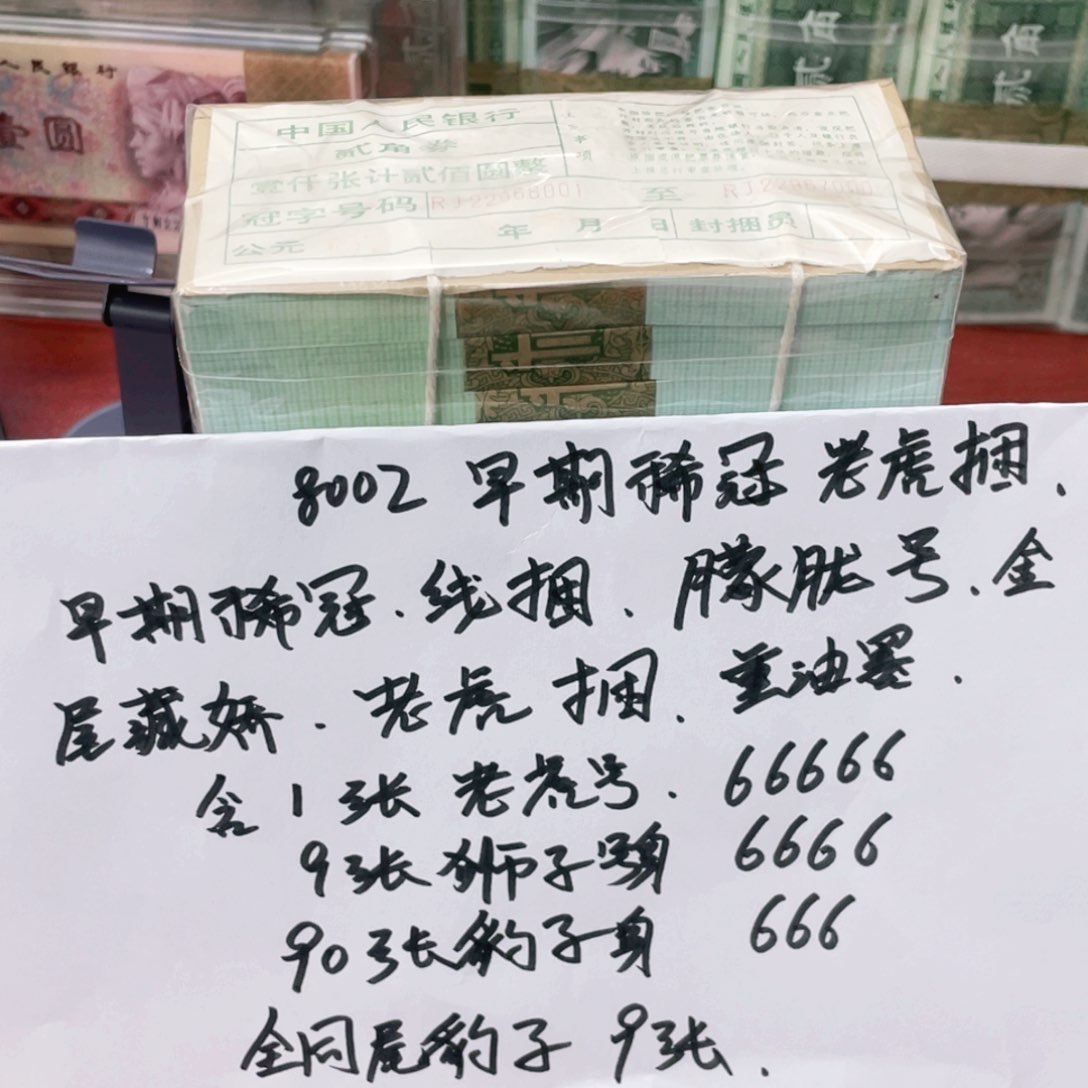 人民银行
壹圆
贰角
贰角
中国人民银行
贰角券
壹仟张计贰佰圆整
冠字号码 RJ22966001 至 RJ22967000
公元 年 月 日 封捆员
8002 早期稀冠 老虎捆、
早期稀冠.线捆、朦胧号、金
尾藏娇.老虎捆、重油墨.
含1张老虎号.66666
9张狮子号身 6666
90张豹子身 666
全同尾豹子 9张.